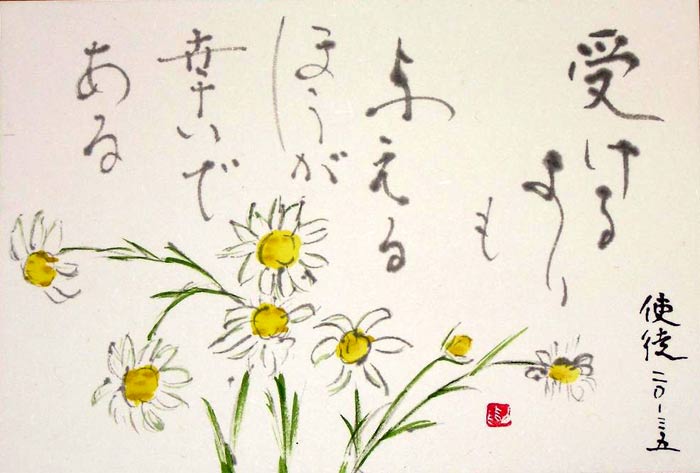 受ける
より
も
与える
ほうが
幸いで
ある
使徒二〇・三五